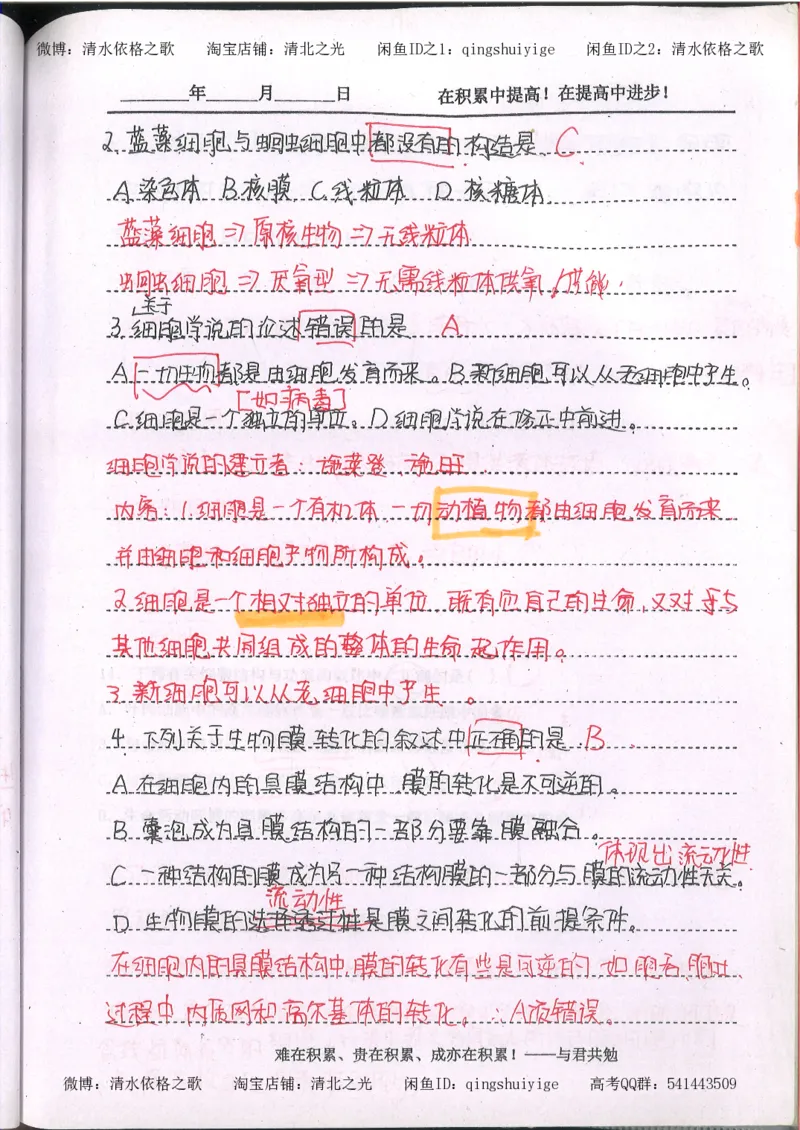 微博：清水依格之歌 淘宝店铺：清北之光 闲鱼ID之1：qingshuiyige 闲鱼ID之2：清水依格之歌
年 月 日 在积累中提高！在提高中进步！
2. 蓝藻细胞与蛔虫细胞中都没有的构造是 C
A. 染色体 B. 核膜 C. 线粒体 D. 核糖体.
蓝藻细胞 => 原核生物 => 无线粒体
蛔虫细胞 => 厌氧型 => 无需线粒体供氧、供能.
关于
3. 细胞学说的论述错误的是 A
A. 一切生物都是由细胞发育而来。B. 新细胞可以从老细胞中产生。
[如病毒]
C. 细胞是一个独立的单位。D. 细胞学说在修正中前进。
细胞学说的建立者：施莱登、施旺
内容：1. 细胞是一个有机体，一切动植物都由细胞发育而来
并由细胞和细胞产物所构成。
2. 细胞是一个相对独立的单位，既有它自己的生命，又对与
其他细胞共同组成的整体的生命起作用。
3. 新细胞可以从老细胞中产生。
4. 下列关于生物膜转化的叙述中正确的是 B
A. 在细胞内的具膜结构中，膜的转化是不可逆的。
B. 囊泡成为具膜结构的一部分要靠膜融合。
体现出流动性
C. 一种结构的膜成为另一种结构膜的一部分与膜的流动性无关。
流动性
D. 生物膜的选择透过性是膜之间转化的前提条件。
在细胞内的具膜结构中，膜的转化有些是可逆的，如胞吞、胞吐、
过程中内质网和高尔基体的转化，∴A项错误。
难在积累、贵在积累、成亦在积累！——与君共勉
微博：清水依格之歌 淘宝店铺：清北之光 闲鱼ID：qingshuiyige 高考QQ群：541443509